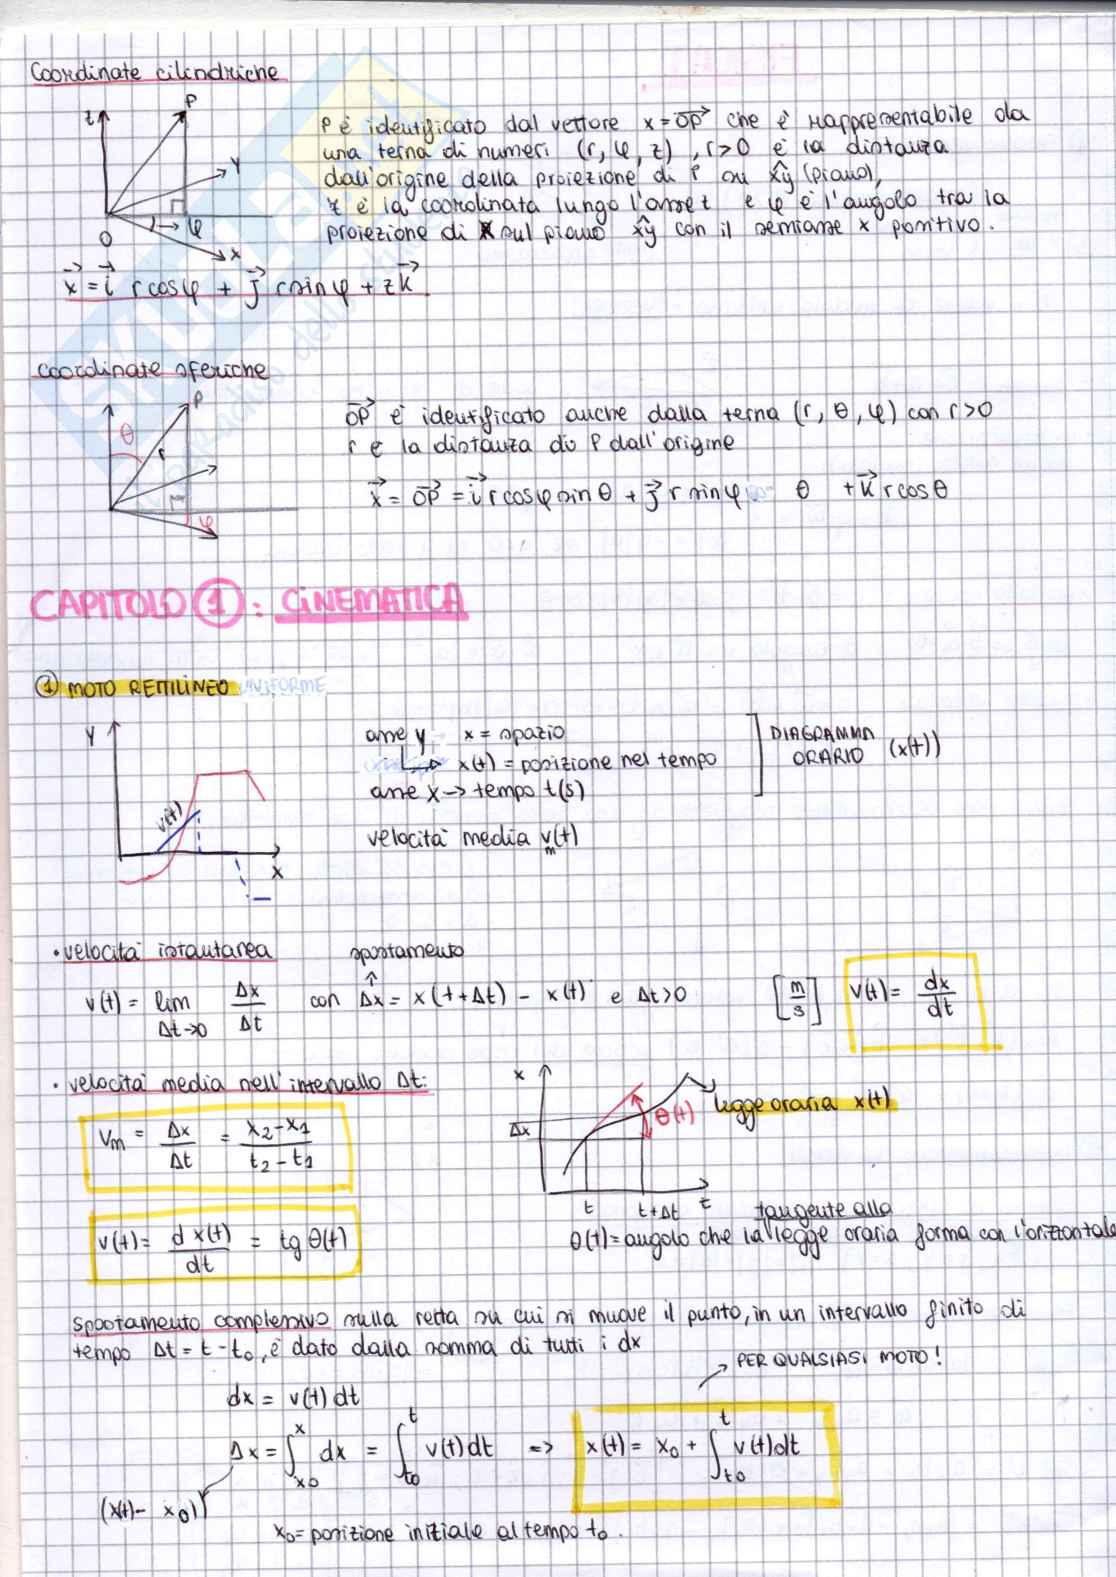 Coordinate cilindriche
z
P
y
φ
O
x
P è identificato dal vettore x = OP→ che è rappresentabile da
una terna di numeri (r, φ, z), r>0 è la distanza
dall'origine della proiezione di P su x̂y (piano),
z è la coordinata lungo l'asse z e φ è l'angolo tra la
proiezione di x sul piano x̂y con il semiasse x positivo.
x→ = i→ r cosφ + j→ r sinφ + z k→
coordinate sferiche
P
θ
r
φ
OP→ è identificato anche dalla terna (r, θ, φ) con r>0
r è la distanza di P dall'origine
x→ = OP→ = i→ r cosφ sinθ + j→ r sinφ θ + k→ r cosθ
CAPITOLO 1: CINEMATICA
1 MOTO RETTILINEO UNIFORME
y
v(t)
x
asse y x = spazio
↳ x(t) = posizione nel tempo
asse x → tempo t(s)
] DIAGRAMMA
ORARIO (x(t))
velocità media vm(t)
• velocità istantanea
spostamento
v(t) = lim Δt→0 Δx/Δt con Δx = x(t+Δt) - x(t) e Δt>0 [m/s] v(t) = dx/dt
• velocità media nell'intervallo Δt:
vm = Δx/Δt = (x2-x1)/(t2-t1)
x
Δx
θ(t)
legge oraria x(t)
t t+Δt t
v(t) = dx(t)/dt = tg θ(t)
tangente alla
θ(t) = angolo che la legge oraria forma con l'orizzontale
spostamento complessivo sulla retta su cui si muove il punto, in un intervallo finito di
tempo Δt = t - t0, è dato dalla somma di tutti i dx
→ PER QUALSIASI MOTO!
dx = v(t) dt
Δx = ∫_{x0}^{x} dx = ∫_{t0}^{t} v(t) dt => x(t) = x0 + ∫_{t0}^{t} v(t) dt
(x(t) - x0)
x0 = posizione iniziale al tempo t0.